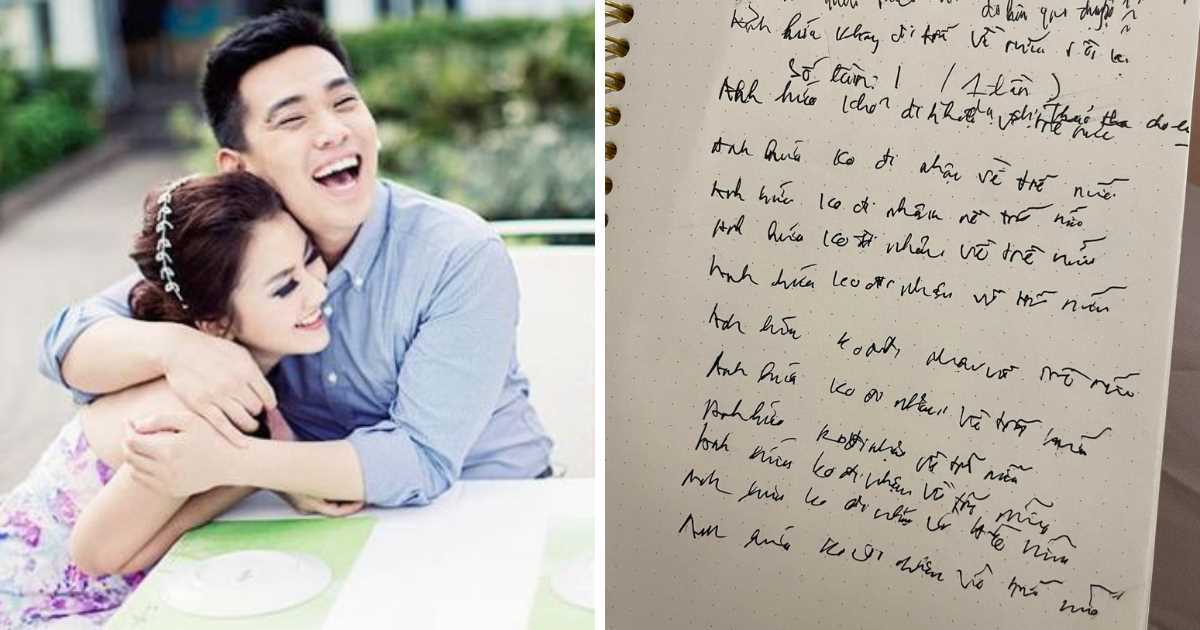 Anh hứa khay đi trễ về nữa
Số lần: 1 / 1 lần )
Anh hứa
Anh hứa ko đi nhậu về trễ nữa
Anh hứa ko đi nhậu về trễ nữa
Anh hứa ko đi nhậu về trễ nữa
Anh hứa ko đi nhậu về trễ nữa
Anh hứa ko đi nhậu về trễ nữa
Anh hứa ko đi nhậu về trễ nữa
Anh hứa ko đi nhậu về trễ nữa
Anh hứa ko đi nhậu về trễ nữa
Anh hứa ko đi nhậu về trễ nữa
Anh hứa ko đi nhậu về trễ nữa